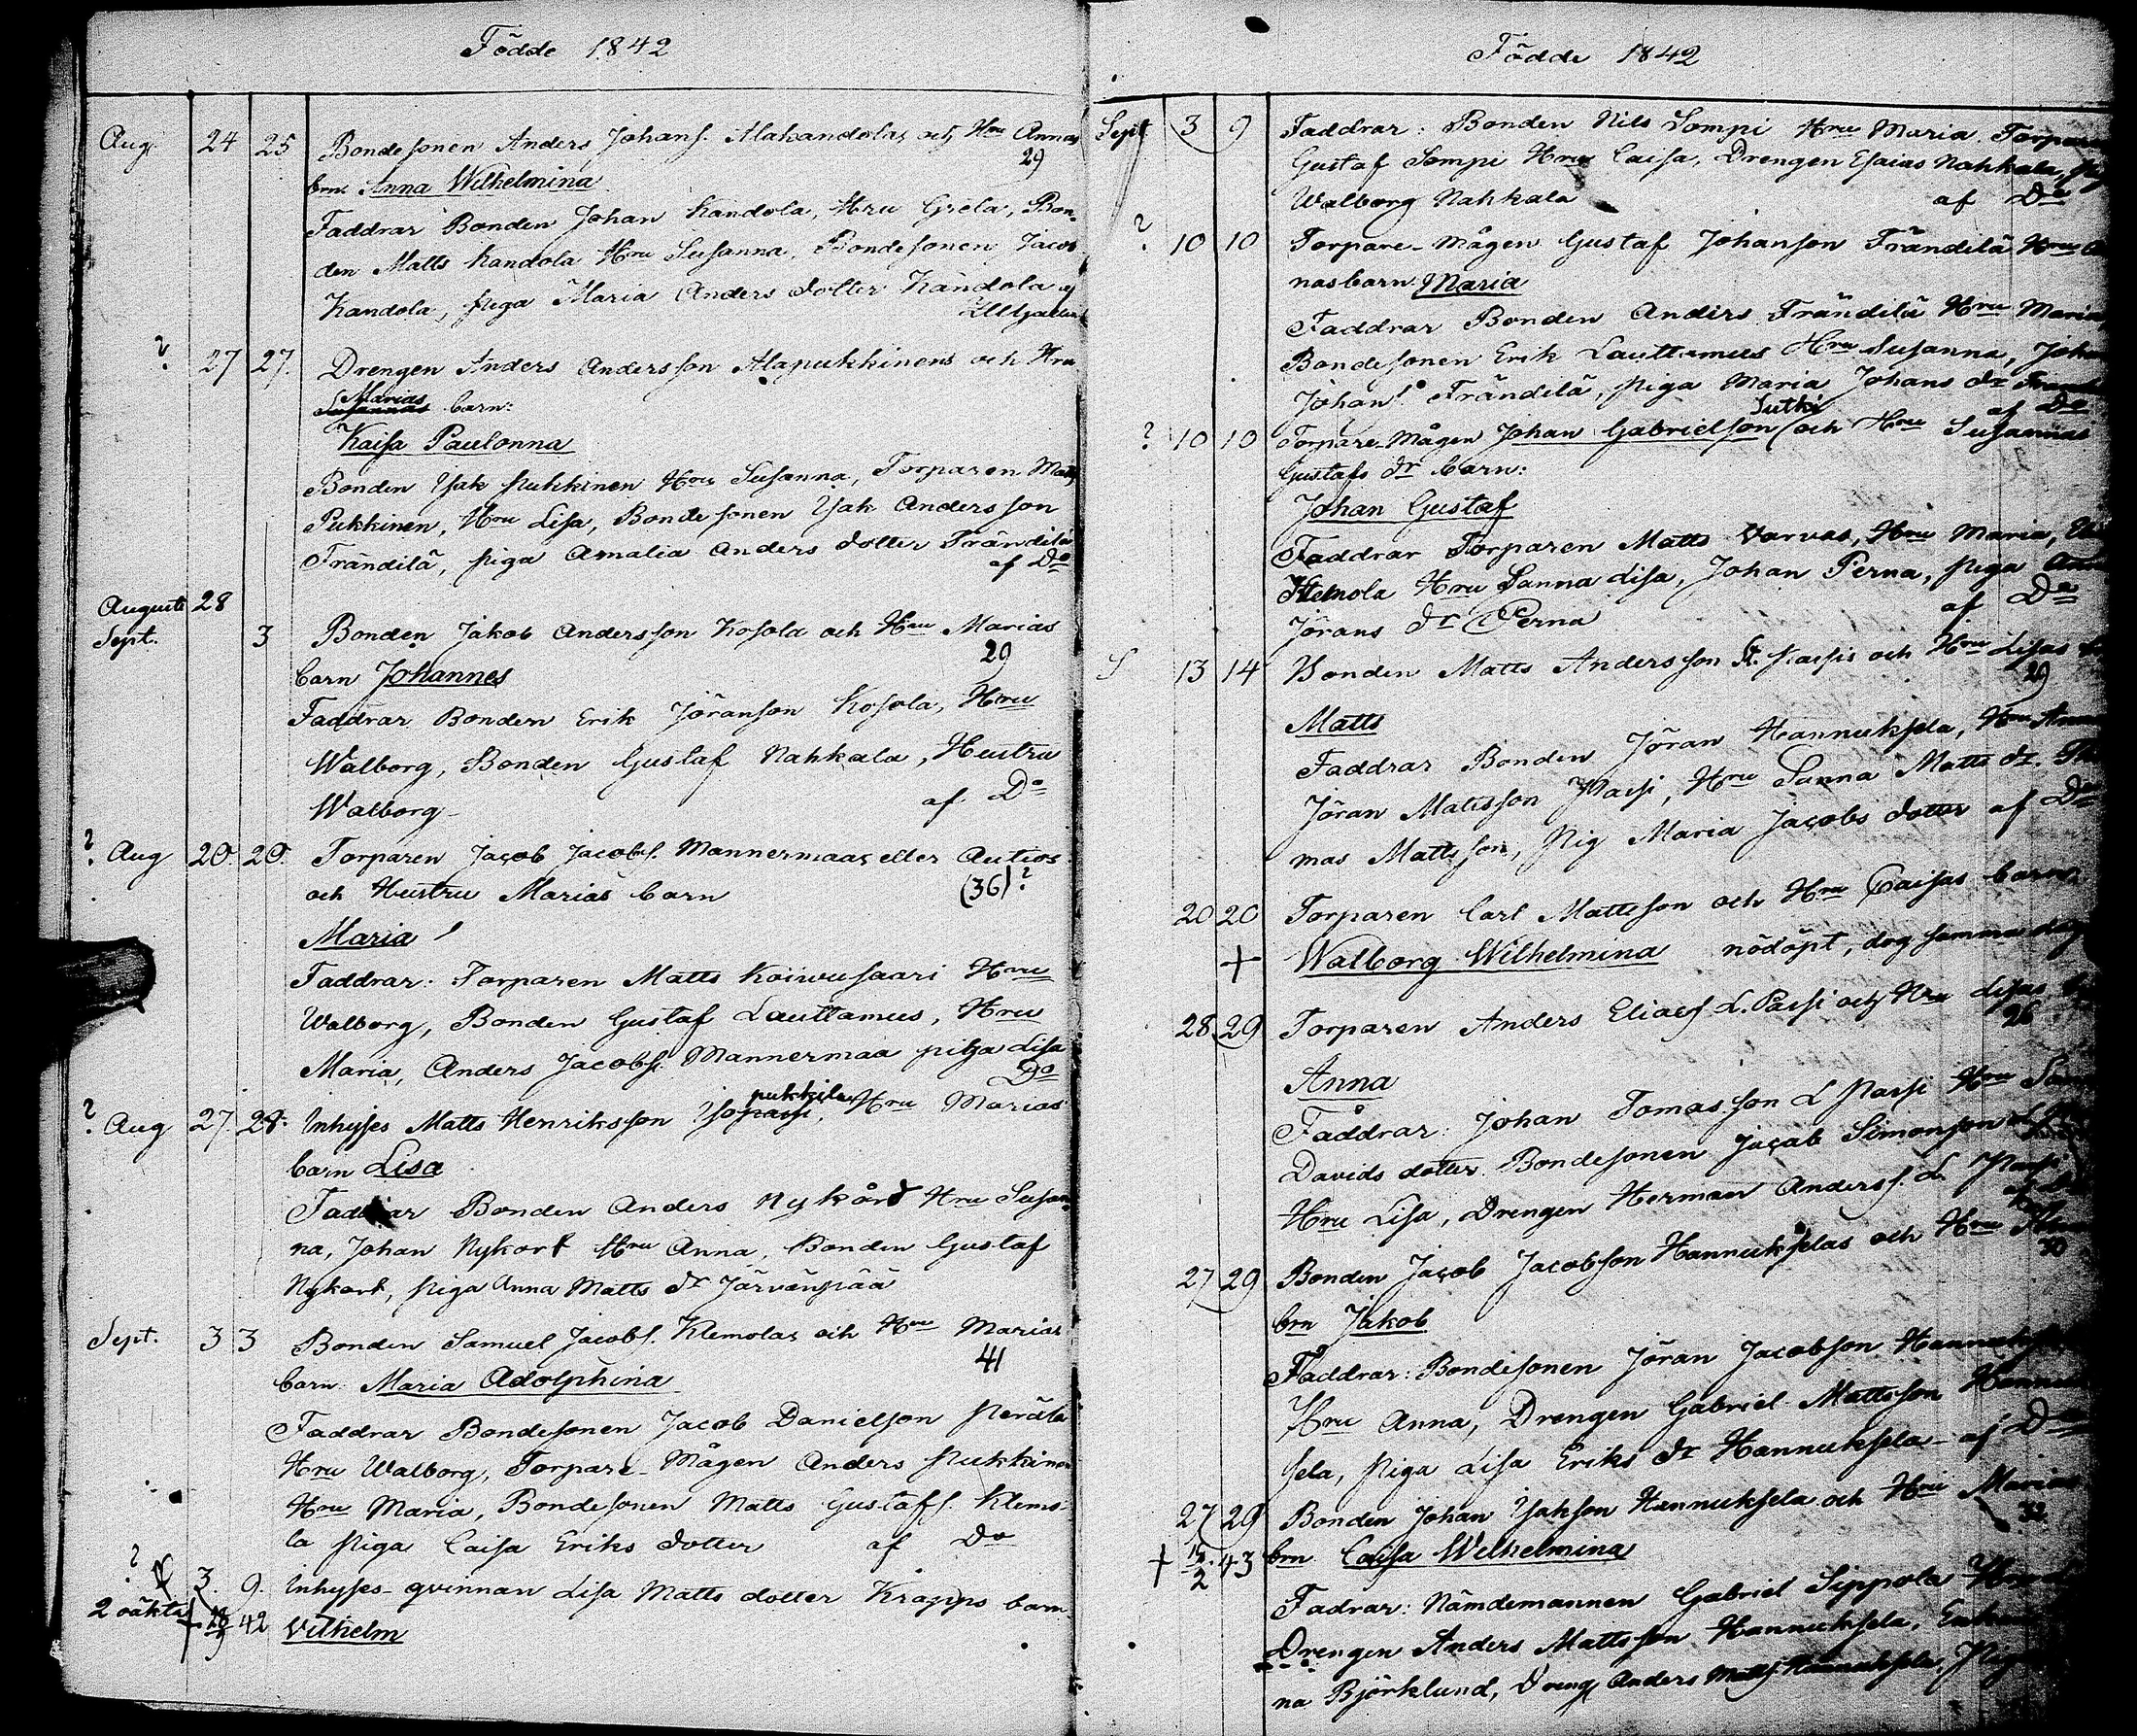 Födde 1842
Aug. 24 25 Bondesonen Anders Johans. Alakandolas och Hru Annas
29
brn Anna Wilhelmina
Faddrar Bonden Johan Kandola, Hru Greta, Bon-
den Matts Kandola Hru Susanna, Bondesonen Jacob
Kandola, piga Maria Anders dotter Kandola af
? 27 27. Drengen Anders Andersson Alapukkinens och Hru
Marias
Susannas barn:
Kaisa Paulonna
Bonden Isak Pukkinen Hru Susanna, Torparen Matts
Pukkinen, Hru Lisa, Bondesonen Isak Andersson
Frändilä, piga Amalia Anders dotter Frändilä
af Do
Augusti 28
Sept. 3 Bonden Jakob Andersson Kosola och Hru Marias
29
barn Johannes
Faddrar Bonden Erik Jöranson Kosola, Hru
Walborg, Bonden Gustaf Nahkala, Hustru
Walborg af Do
? Aug 20. 20. Torparen Jacob Jacobs. Mannermaas eller Autios
och Hustru Marias barn (36)?
Maria
Faddrar: Torparen Matts Koivusaari Hru
Walborg, Bonden Gustaf Lauttamus, Hru
Maria, Anders Jacobs. Mannermaa piga Lisa
Do
pukkila
? Aug 27. 28. Inhyses Matts Henriksson Isopassi, Hru Marias
barn Lisa
Faddrar Bonden Anders Nykård Hru Susan-
na, Johan Nykort Hru Anna, Bonden Gustaf
Nykort, Piga Anna Matts dr Järvänpää
Sept. 3 3 Bonden Samuel Jacobs. Klemolas och Hru Marias
41
barn Maria Adolphina
Faddrar Bondesonen Jacob Danielson Perälä
Hru Walborg, Torpare-Mågen Anders Pukkinen
Hru Maria, Bondesonen Matts Gustafs. Klemo-
la Piga Caisa Eriks dotter af Do
? 3. 9. Inhyses-qvinnan Lisa Matts dotter Krapps barn
2 oäkta 42 Vilhelm
Födde 1842
Sept 3 9 Faddrar: Bonden Nils Sompi Hru Maria. Torparen
Gustaf Sompi Hru Caisa, Drengen Esaias Nahkala,
Walborg Nahkala af Do
? 10 10 Torpare-Mågen Gustaf Johanson Frändilä Hru
nas barn Maria
Faddrar Bonden Anders Frändilä Hru Maria,
Bondesonen Erik Lauttamus Hru Susanna,
Johan Frändilä, Piga Maria Johans dr
Sutki af Do
? 10 10 Torpare-Mågen Johan Gabrielson och Hru Susannas
Gustafs dr barn:
Johan Gustaf
Faddrar Torparen Matts Varvas, Hru Maria,
Klemola Hru Sanna Lisa, Johan Perna, piga
Jörans dr Perna af Do
S 13 14 Bonden Matts Andersson St. Passis och Hru Lisas
29
Matts
Faddrar Bonden Jöran Hannuksela, Hru
Jöran Mattsson Passi, Hru Sanna Matts dr.
mas Mattsson, Pig Maria Jacobs dotter af Do
20 20 Torparen Carl Mattsson och Hru Caisas barn
+ Walborg Wilhelmina nödöpt, dog samma dag
28 29 Torparen Anders Eliaes L. Passi och Hru Lisas
26
Anna
Faddrar: Johan Tomasson L Passi Hru
Davids dotter Bondesonen Jacob Simonson
Hru Lisa, Drengen Herman Anderss. L Passi
27 29 Bonden Jacob Jacobson Hannukselas och Hru
30
brn Jakob
Faddrar: Bondesonen Jöran Jacobson
Hru Anna, Drengen Gabriel Mattsson
sela, Piga Lisa Eriks dr Hannuksela af Do
27 29 Bonden Johan Isakson Hannuksela och Hru Marias
32
+ 43 brn Caisa Wilhelmina
Fadrar: Nämdemannen Gabriel Sippola
Drengen Anders Mattsson Hannuksela,
na Björklund, Dreng Anders Matts. Hannuksela,